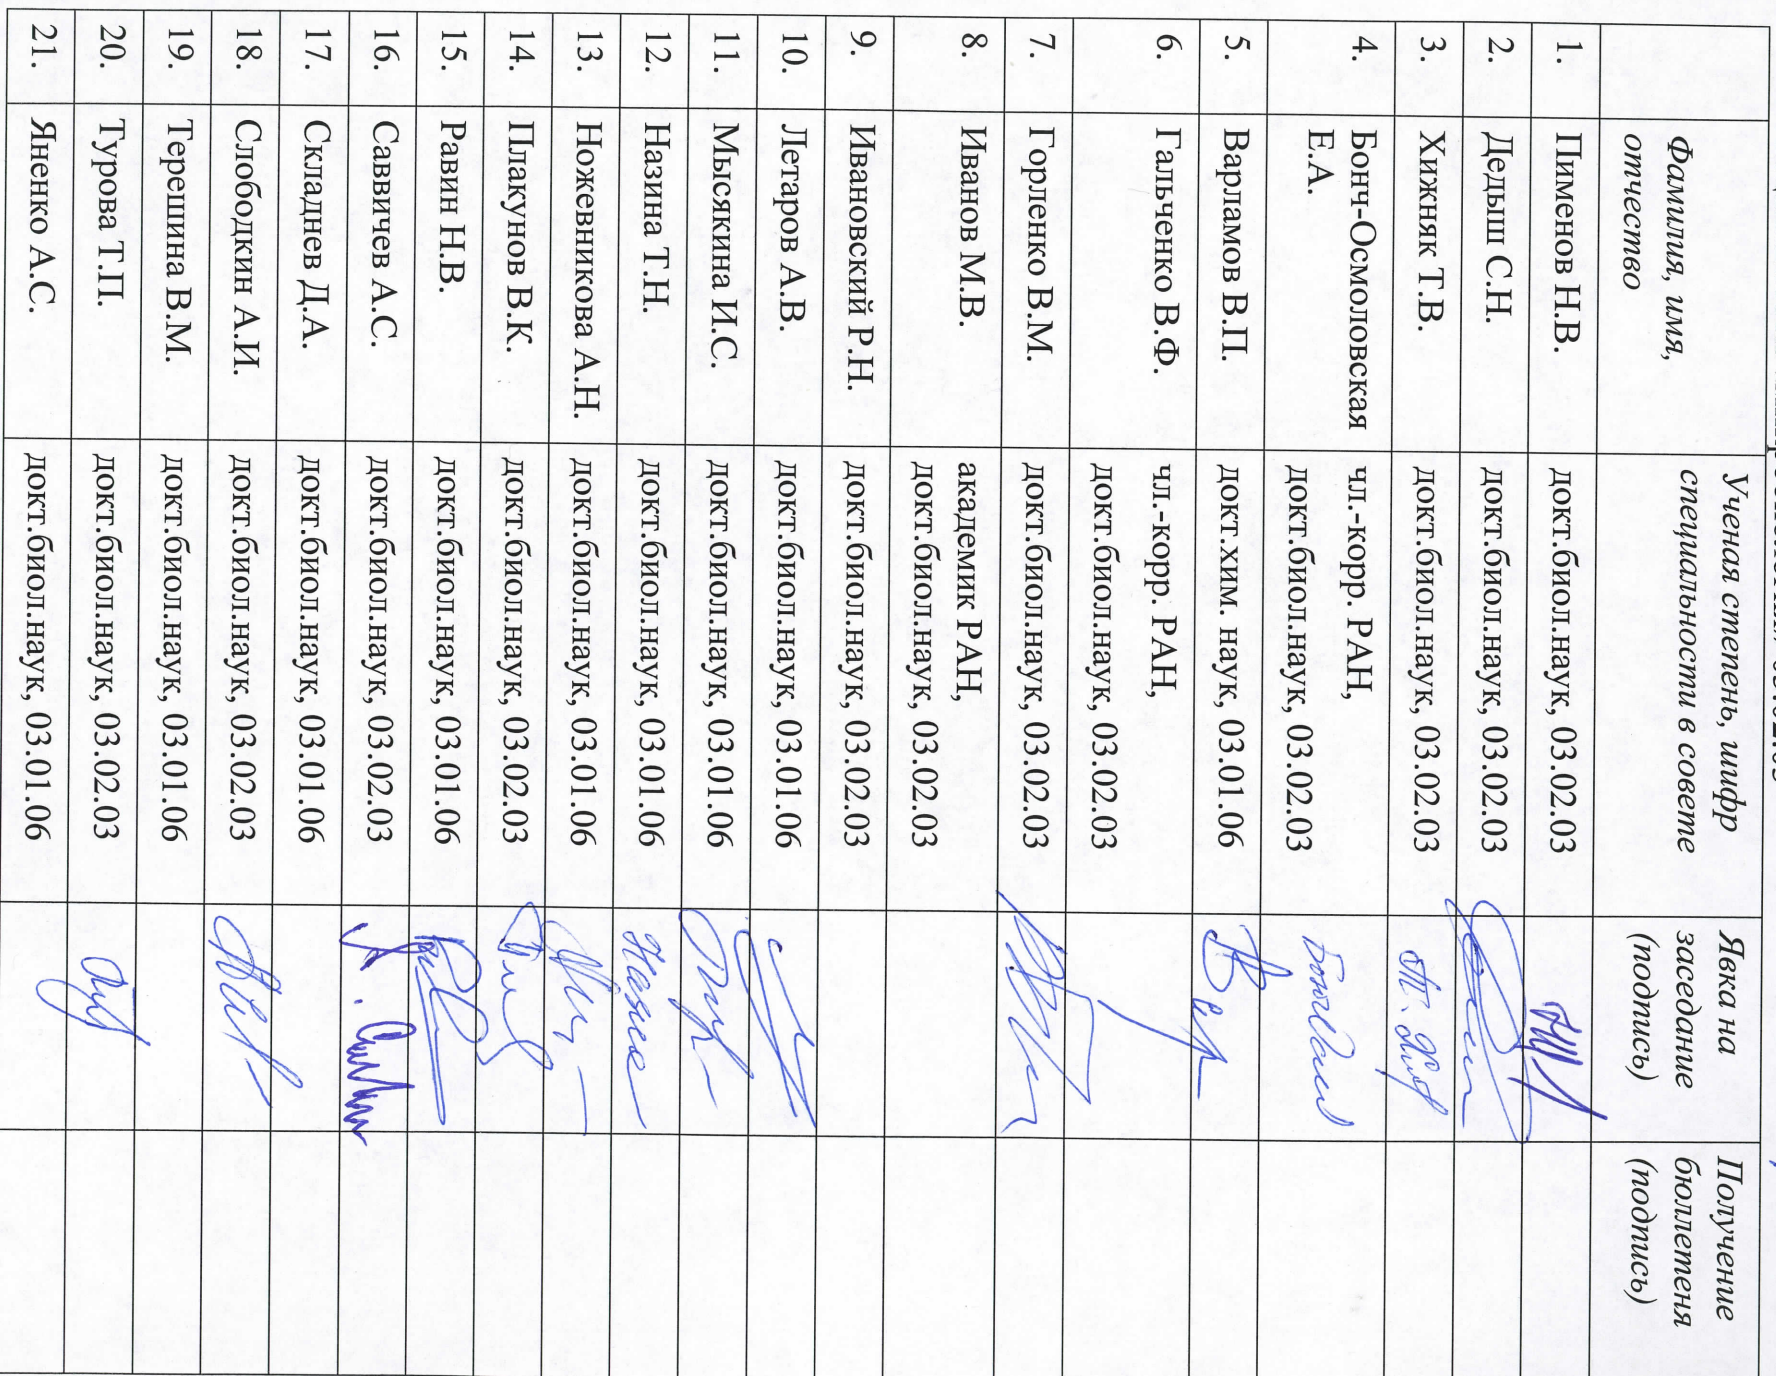 03.02.03
Фамилия, имя,
отчество
Ученая степень, шифр
специальности в совете
Явка на
заседание
(подпись)
Получение
бюллетеня
(подпись)
1. Пименов Н.В. докт.биол.наук, 03.02.03
2. Дедыш С.Н. докт.биол.наук, 03.02.03
3. Хижняк Т.В. докт.биол.наук, 03.02.03
4. Бонч-Осмоловская чл.-корр. РАН,
Е.А. докт.биол.наук, 03.02.03
5. Варламов В.П. докт.хим. наук, 03.01.06
6. Гальченко В.Ф. чл.-корр. РАН,
докт.биол.наук, 03.02.03
7. Горленко В.М. докт.биол.наук, 03.02.03
8. Иванов М.В. академик РАН,
докт.биол.наук, 03.02.03
9. Ивановский Р.Н. докт.биол.наук, 03.02.03
10. Летаров А.В. докт.биол.наук, 03.01.06
11. Мысякина И.С. докт.биол.наук, 03.01.06
12. Назина Т.Н. докт.биол.наук, 03.01.06
13. Ножевникова А.Н. докт.биол.наук, 03.01.06
14. Плакунов В.К. докт.биол.наук, 03.02.03
15. Равин Н.В. докт.биол.наук, 03.01.06
16. Саввичев А.С. докт.биол.наук, 03.02.03
17. Складнев Д.А. докт.биол.наук, 03.01.06
18. Слободкин А.И. докт.биол.наук, 03.02.03
19. Терешина В.М. докт.биол.наук, 03.01.06
20. Турова Т.П. докт.биол.наук, 03.02.03
21. Яненко А.С. докт.биол.наук, 03.01.06